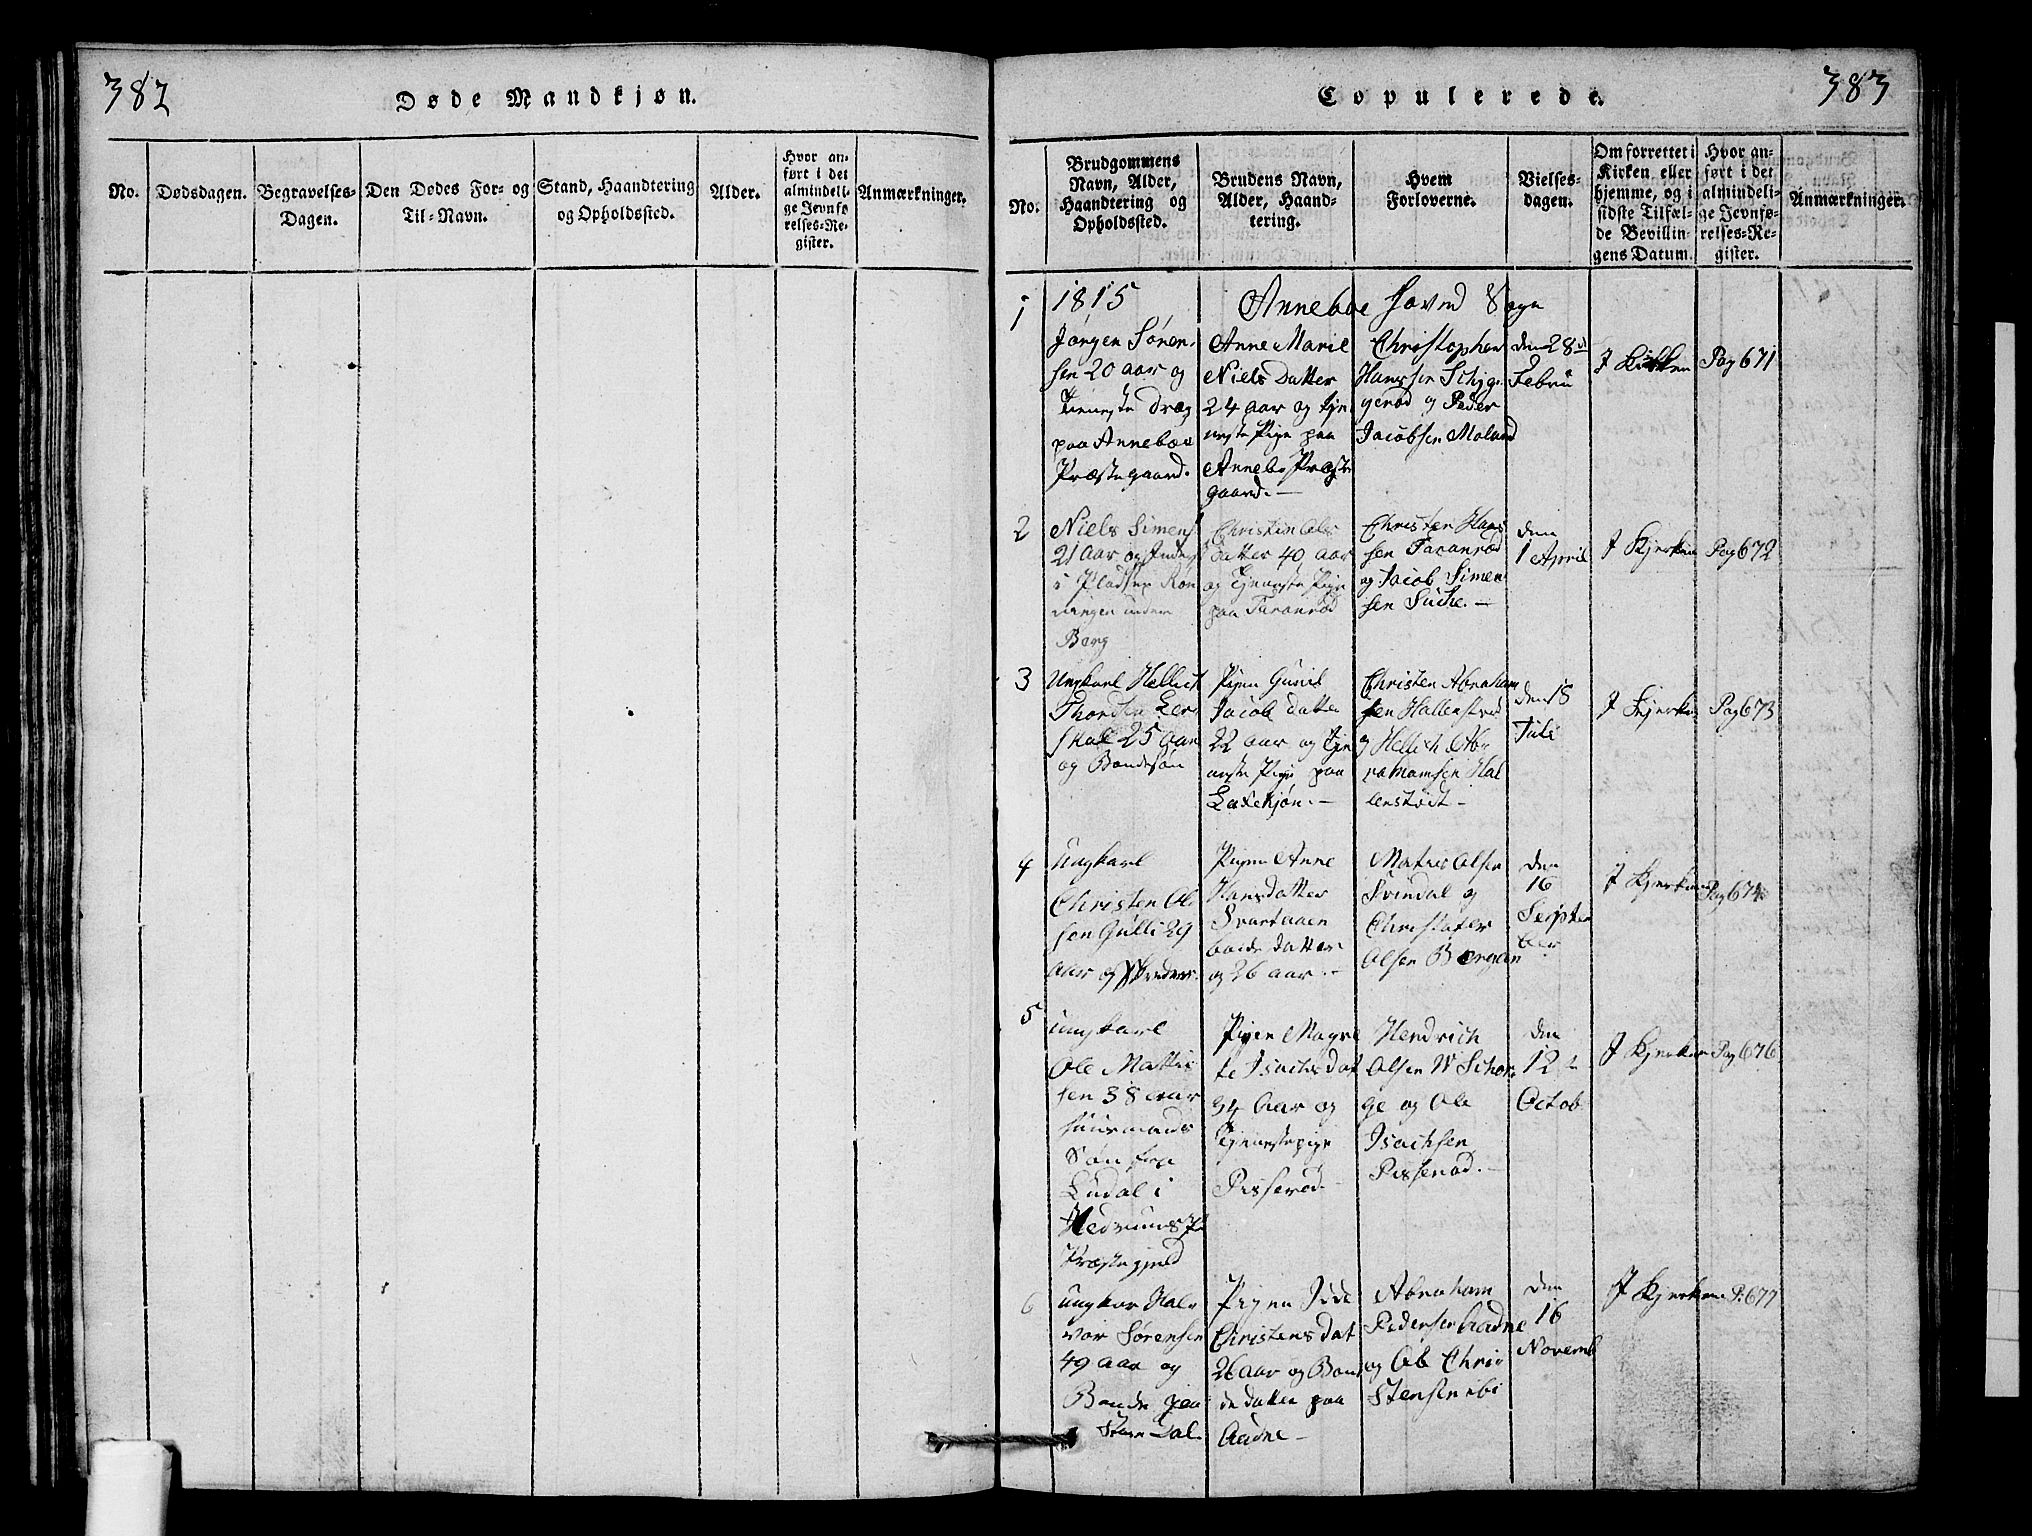 382
Døde Mandkjøn.
No.
Dødsdagen.
Begravelses-
Dagen.
Den Dødes For- og
Til-Navn.
Stand, Haandtering
og Opholdssted.
Alder.
Hvor an-
ført i det
almindeli-
ge Jevnfø-
relses-Re-
gister.
Anmærkninger.
Copulerede.
383
No.
Brudgommens
Navn, Alder,
Haandtering og
Opholdssted.
Brudens Navn,
Alder, Haand-
tering.
Hvem
Forloverne.
Vielses-
dagen.
Om forrettet i
Kirken eller
hjemme, og i
sidste Tilfæl-
de Bevillin-
gens Datum.
Hvor an-
ført i det
almindeli-
ge Jevnfø-
relses-Re-
gister.
Anmærkninger.
1815
Anneboe Hoved Sogn
1
Jørgen Søren-
sen 20 aar og
Tieneste Dræg
paa Annebøe
Præstegaard.
Anne Marie
Niels Datter
24 aar og tje
neste Pige paa
Annebo Præste
gaard.-
Christopher
Hanssen Schyg-
gerød og Peder
Jacobsen Moland
den 28de
Febru
J Kirken
Pag 671
2
Niels Simens
21 aar og
i Pladsen Røn
ningen under
Berg
Christin Ols
Datter 40 aar
og Tjeneste Pige
paa Taranrød
Christen Han
sen Taranrød
og Jacob Simen
sen
den
1 April
J Kjerken
Pag 672
3
Ungkarl Hellich
Thordsen Ler
skal 25 aar
og Bondesøn
Pigen Gunil
Jacob Datter
22 aar og tje
neste Pige paa
Laxekjøn.-
Christen Abraham
sen Hallenstvedt
og Hellich Ab
rahamsen Hal
lenstvedt-
den 18
Juli
J Kjerken
Pag 673
4
Ungkarl
Christen Ol
sen Gulli 29
aar og
Pigen Anne
Hansdatter
Svartaaen
bonde datter
og 26 aar.-
Matis Olsen
Svindal og
Christofer
Olsen Bergan
den
16
Septem
ber
J Kjerken
Pag 674
5
Ungkarl
Ole Mattis
sen 38 aar
huusmands
Søn fra
Ludal i
Hedrums
Præstegjeld
Pigen Magre
te Isachsdat
34 aar og
Tjenestepige
Pisserød
Hendrich
Olsen W Schor
ge og Ole
Isachsen
Pisserød.-
den
12
Octob
J Kjerken
Pag 676
6
Ungkar Hal
vor Sørensen
49 aar og
Bonde paa
Store Dal
Pigen Idde
Christens dat
26 aar og Bon
de datter paa
Aadne-
Abraham
Pedersen Aadne
og Ole Chris
tensen ibi
den
16
Novemb
J Kjerken
P. 677